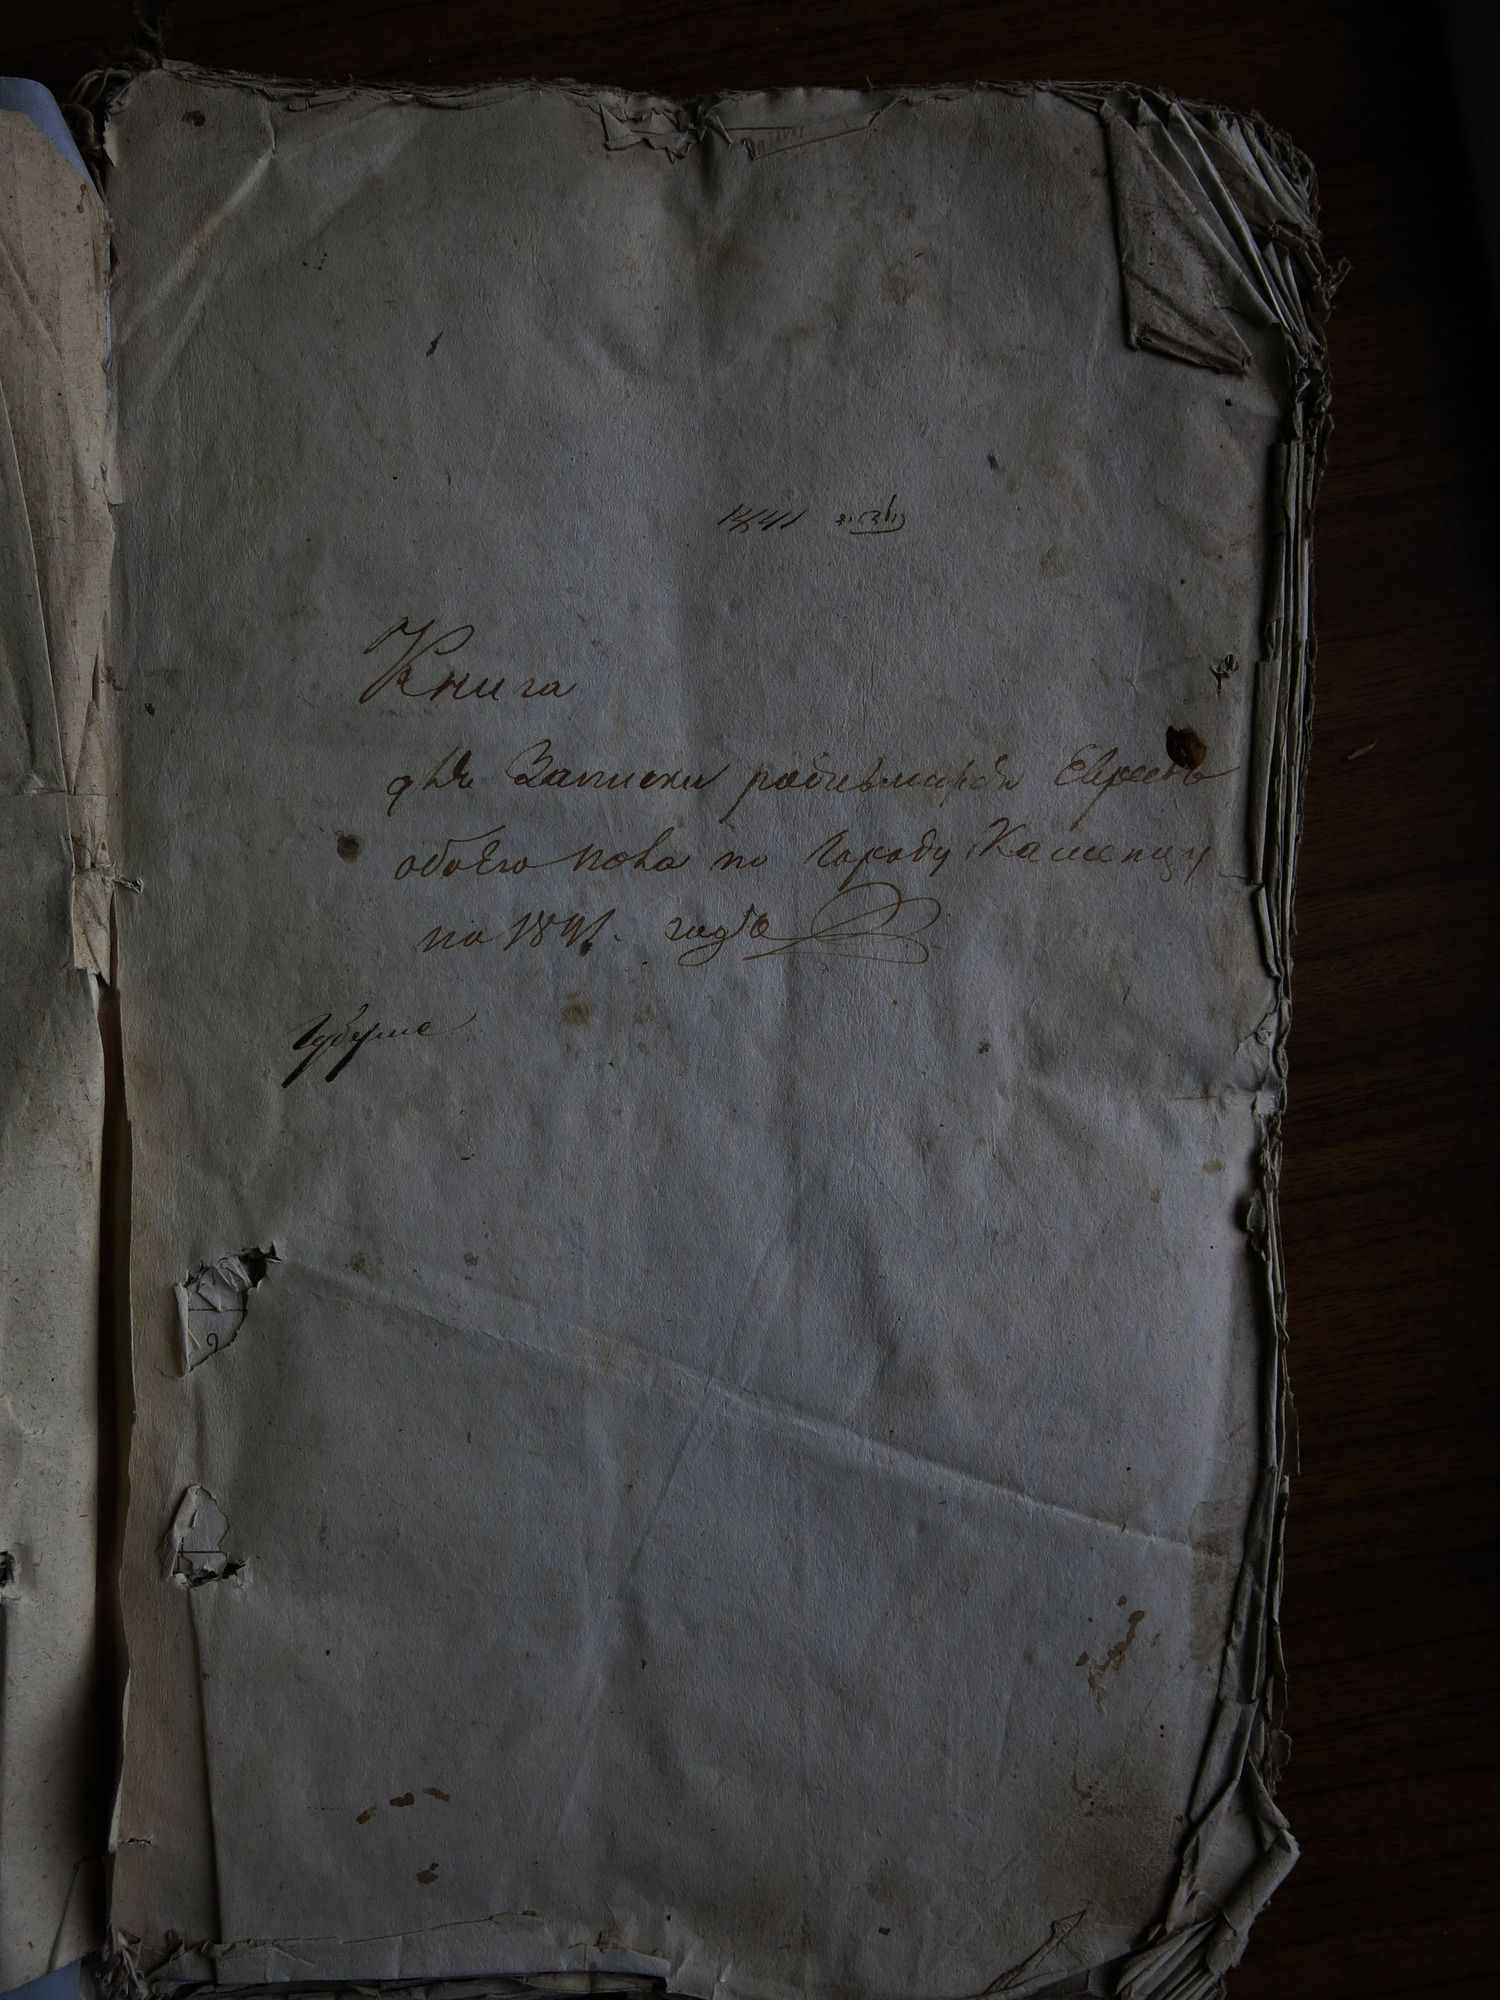 1841 נולדים
Книга
для Записки родившихся Евреевъ
обоего пола по Городу Каменцу
на 1841. годъ